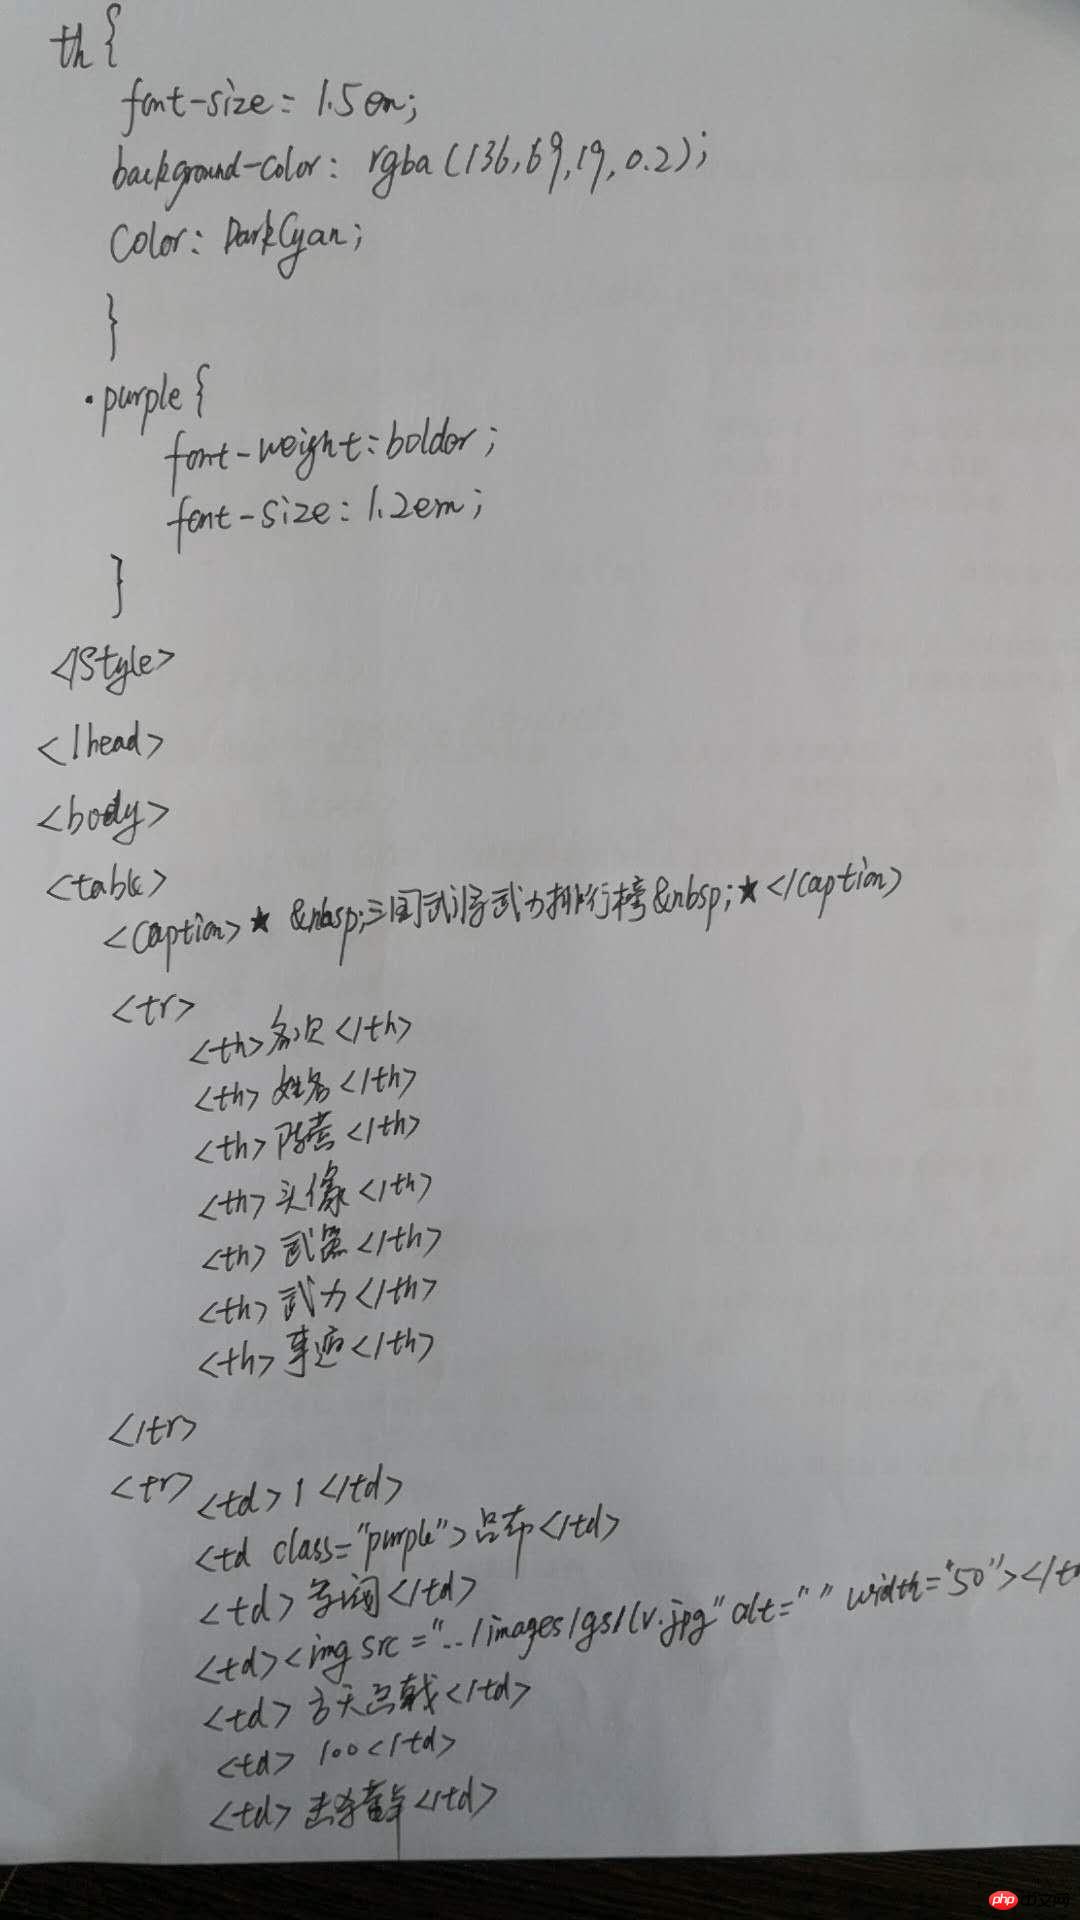 th {
font-size: 1.5em;
background-color: rgba(136,69,19,0.2);
Color: DarkCyan;
}
.purple {
font-weight: boldor;
font-size: 1.2em;
}
</Style>
</head>
<body>
<table>
<caption>★ &nbsp;三国武将武力排行榜&nbsp;★</caption>
<tr>
<th>名次</th>
<th>姓名</th>
<th>阵营</th>
<th>头像</th>
<th>武器</th>
<th>武力</th>
<th>事迹</th>
</tr>
<tr>
<td>1</td>
<td class="purple">吕布</td>
<td></td>
<td><img src="../images/gs/lv.jpg" alt="" width="50"></td
<td>方天画戟</td>
<td>100</td>
<td>击杀董卓</td>
php中文网